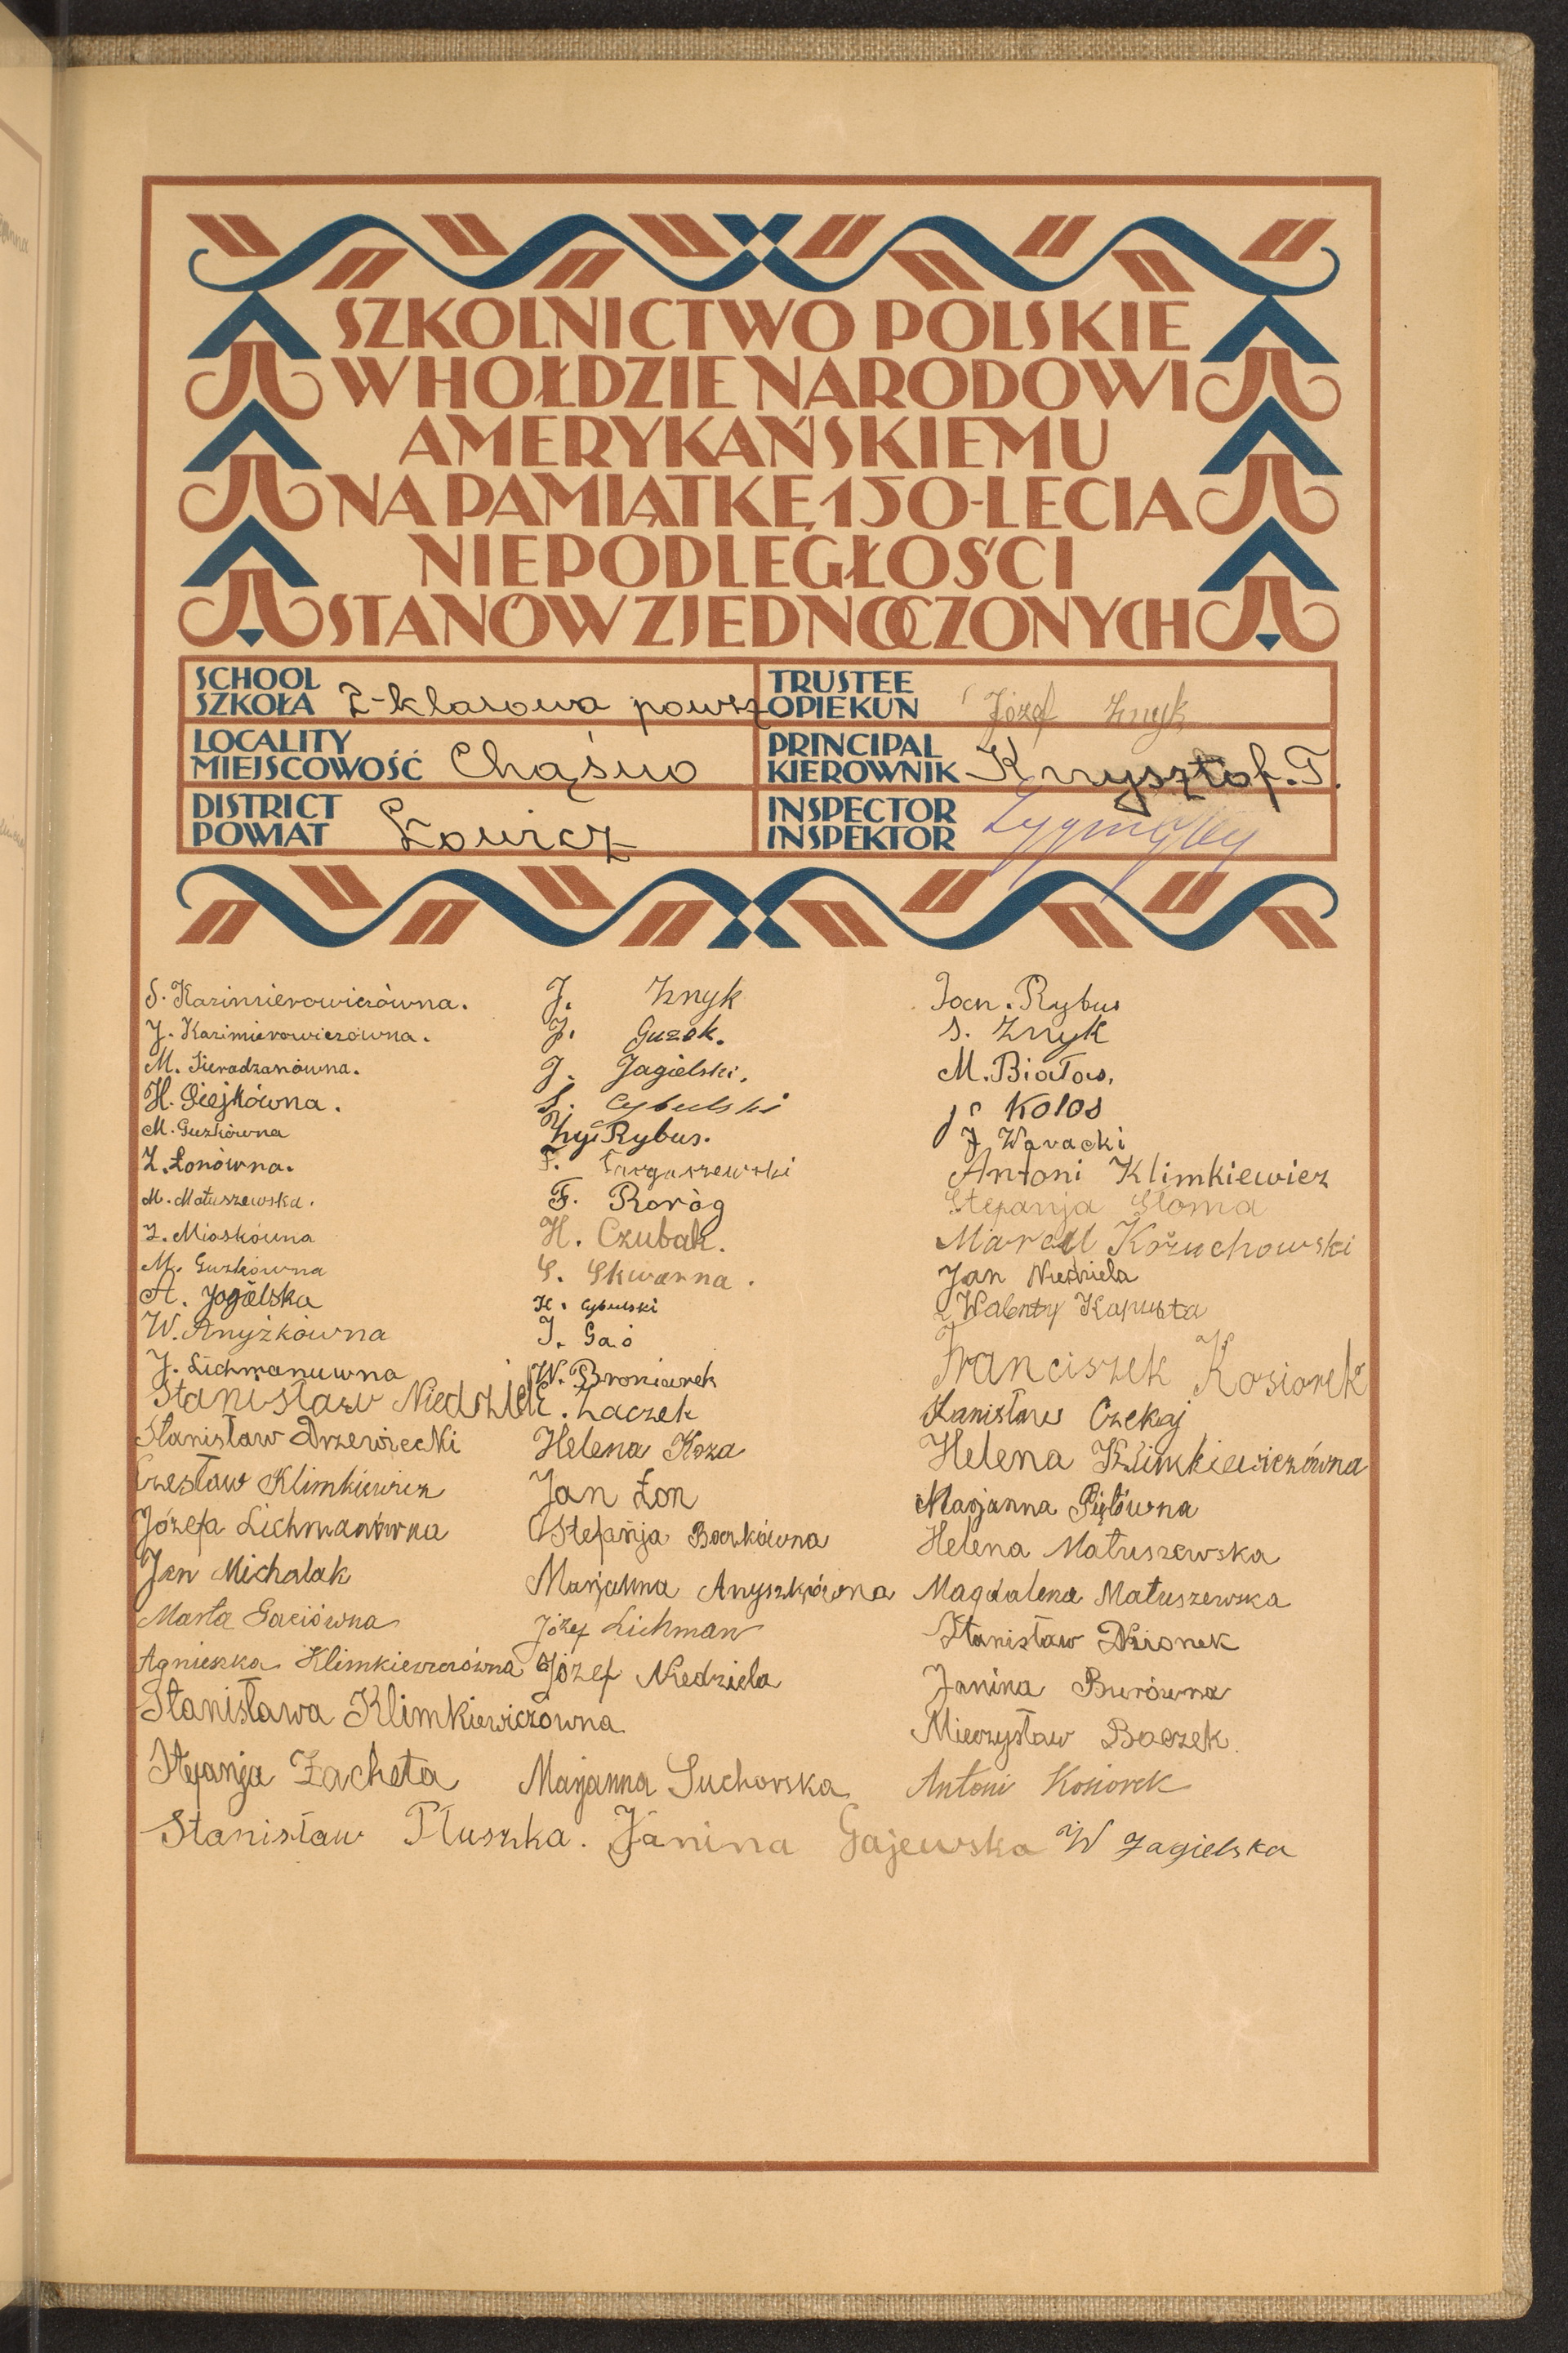 SZKOLNICTWO POLSKIE
W HOŁDZIE NARODOWI
AMERYKAŃSKIEMU
NA PAMIĄTKĘ 150-LECIA
NIEPODLEGŁOŚCI
STANÓW ZJEDNOCZONYCH
SCHOOL
SZKOŁA 2-klasowa powsz
TRUSTEE
OPIEKUN Józef Znyk
LOCALITY
MIEJSCOWOŚĆ Chąśno
PRINCIPAL
KIEROWNIK Krzysztof. T.
DISTRICT
POWIAT Łowicz
INSPECTOR
INSPEKTOR
S. Kazimierowiczówna.
J. Kazimierowiczówna.
M. Sieradzanówna.
H. Siejkówna.
M. Guzkówna
Z. Łonówna.
M. Matuszewska.
Z. Mioskówna
M. Guzkówna
A. Jagielska
W. Anyżkówna
J. Lichmanuwna
Stanisław Niedziela
Stanisław Drzewiecki
Czesław Klimkiewicz
Józefa Lichmanówna
Jan Michalak
Marta Gaciówna
Agnieszka Klimkiewiczówna
Stanisława Klimkiewiczówna
Stefanja Zacheta
Stanisław Pluszka.
J. Znyk
J. Guzek.
J. Jagielski.
S. Cybulski
Zyg. Rybus.
F.
F. Roróg
H. Czubak.
S. Skwarna.
H. Cybulski
J. Gać
W. Broniarek
E. Łaczek
Helena Koza
Jan Łon
Stefanja Boczkówna
Marjanna Anyszkówna
Józef Lichman
Józef Niedziela
Marjanna Suchorska
Janina Gajewska
Jan. Rybus
S. Znyk
M. Białas.
J. Kolos
J. Waracki
Antoni Klimkiewicz
Stefanja Słoma
Marceli Kożuchowski
Jan Niedziela
Walenty Kapusta
Franciszek Kosiorek
Stanisław Czekaj
Helena Klimkiewiczówna
Marjanna
Helena Matuszewska
Magdalena Matuszewska
Stanisław Dzionek
Janina Burówna
Mieczysław Boczek.
Antoni Kosiorek
W Jagielska